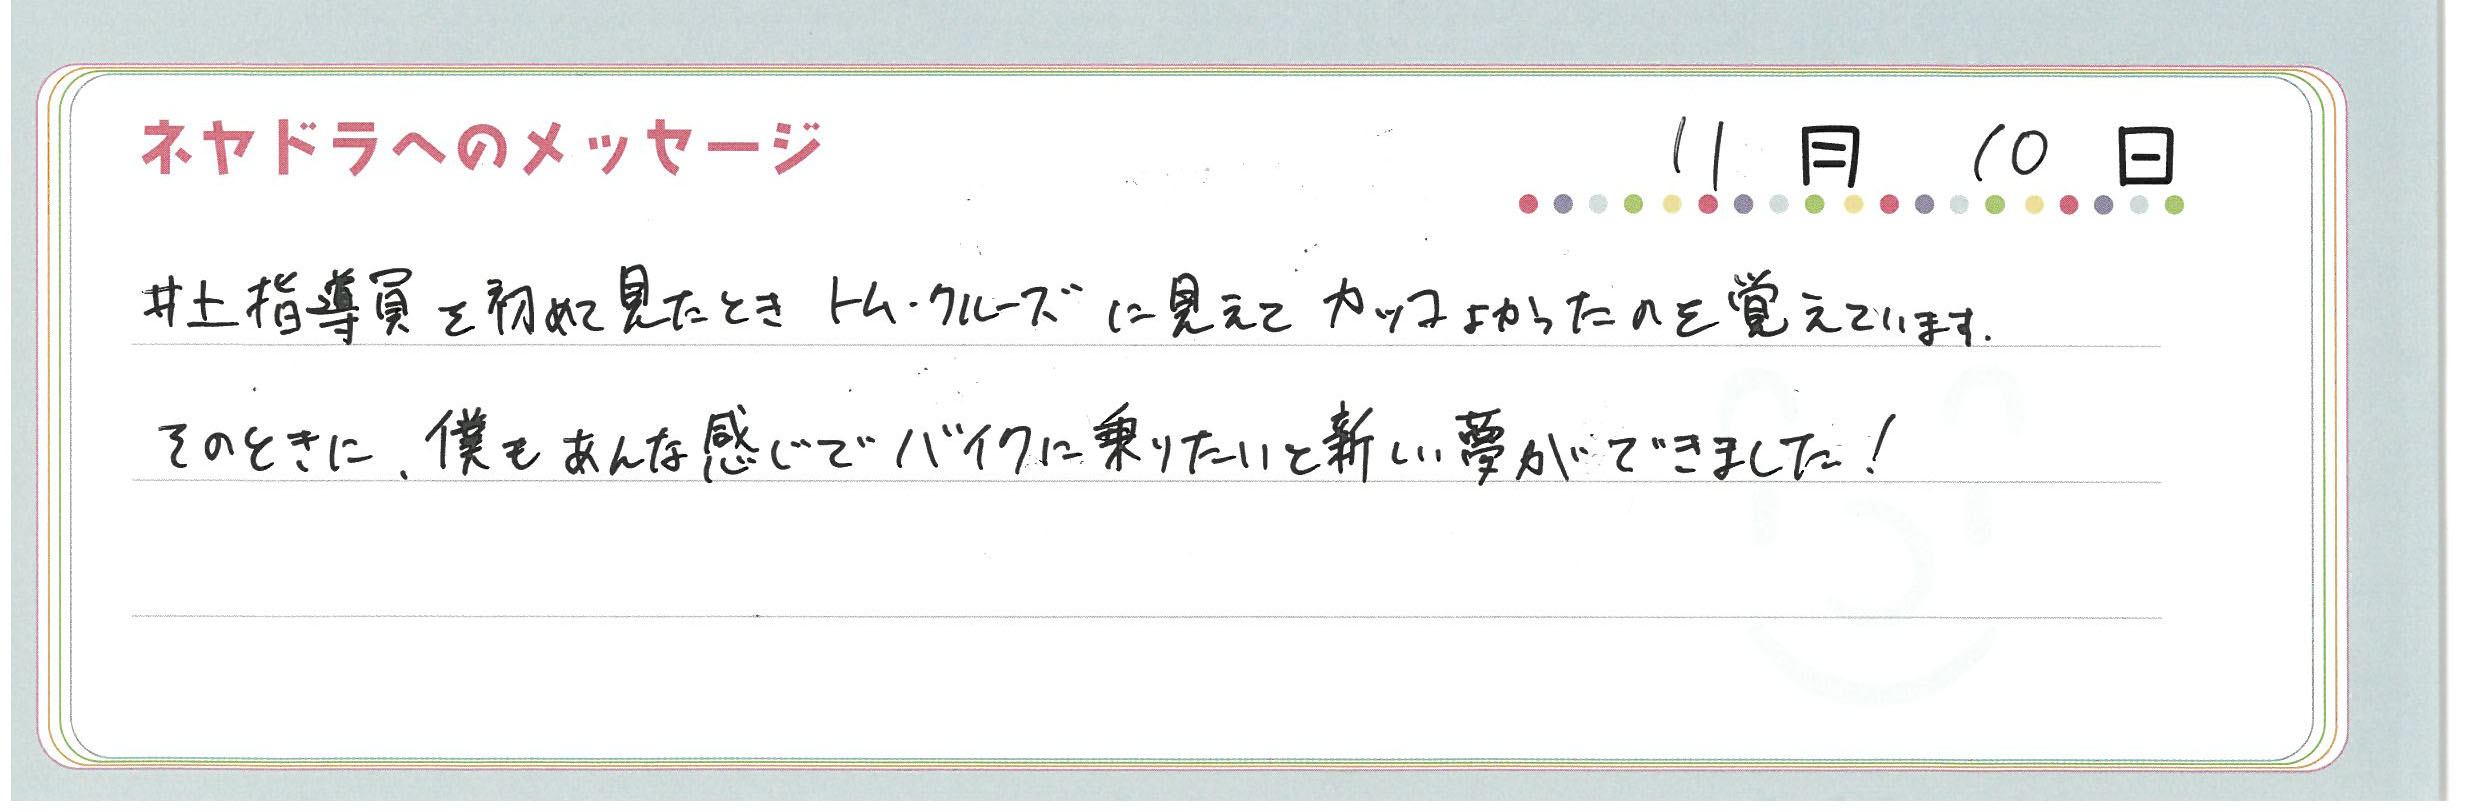 ネヤドラへのメッセージ
11月 10日
井上指導員を初めて見たとき トム・クルーズに見えて カッコよかったのを覚えています.
そのときに、僕もあんな感じでバイクに乗りたいと新しい夢ができました!